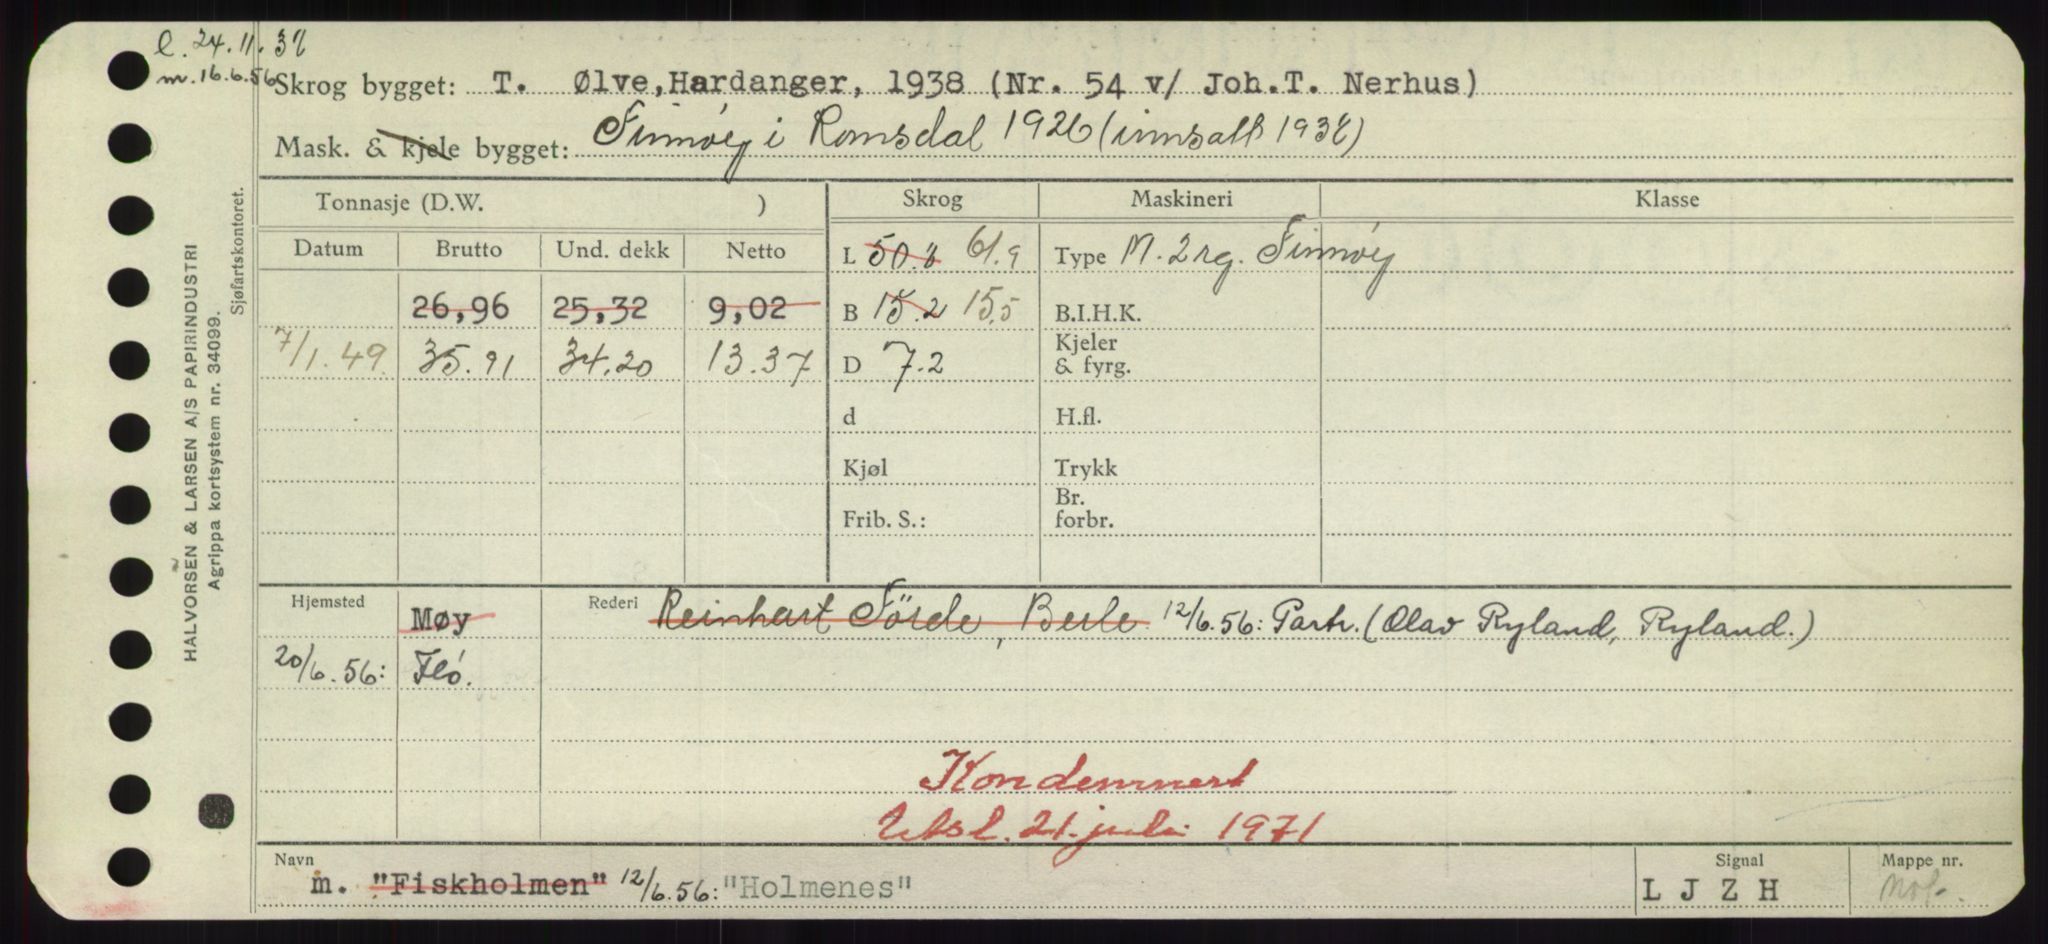 l. 24.11.38
m. 16.6.56
Skrog bygget: T. Ølve,Hardanger, 1938 (Nr. 54 v/ Joh.T. Nerhus)
Mask. & kjele bygget: Finnøy i Romsdal 1926 (innsatt 1938)
Tonnasje (D.W. ) Skrog Maskineri Klasse
Datum Brutto Und. dekk Netto L 50.8 61.9 Type M. 2 rg. Finnøy
26,96 25,32 9,02 B 15.2 15,5 B.I.H.K.
7/1.49. 35.91 34.20 13.37 D 7.2 Kjeler & fyrg.
d H.fl.
Kjøl Trykk
Frib. S.: Br. forbr.
Hjemsted Møy Rederi Reinhart Förde, Berle 12/6.56: Partr. (Olav Ryland, Ryland.)
20/6.56: Fló.
Kondemnert
Utsl. 21. juli 1971
Navn Signal Mappe nr.
m. "Fiskholmen" 12/6.56: "Holmenes" L J Z H
HALVORSEN & LARSEN A/S PAPIRINDUSTRI
Agrippa kortsystem nr. 34099.
Sjøfartskontoret.